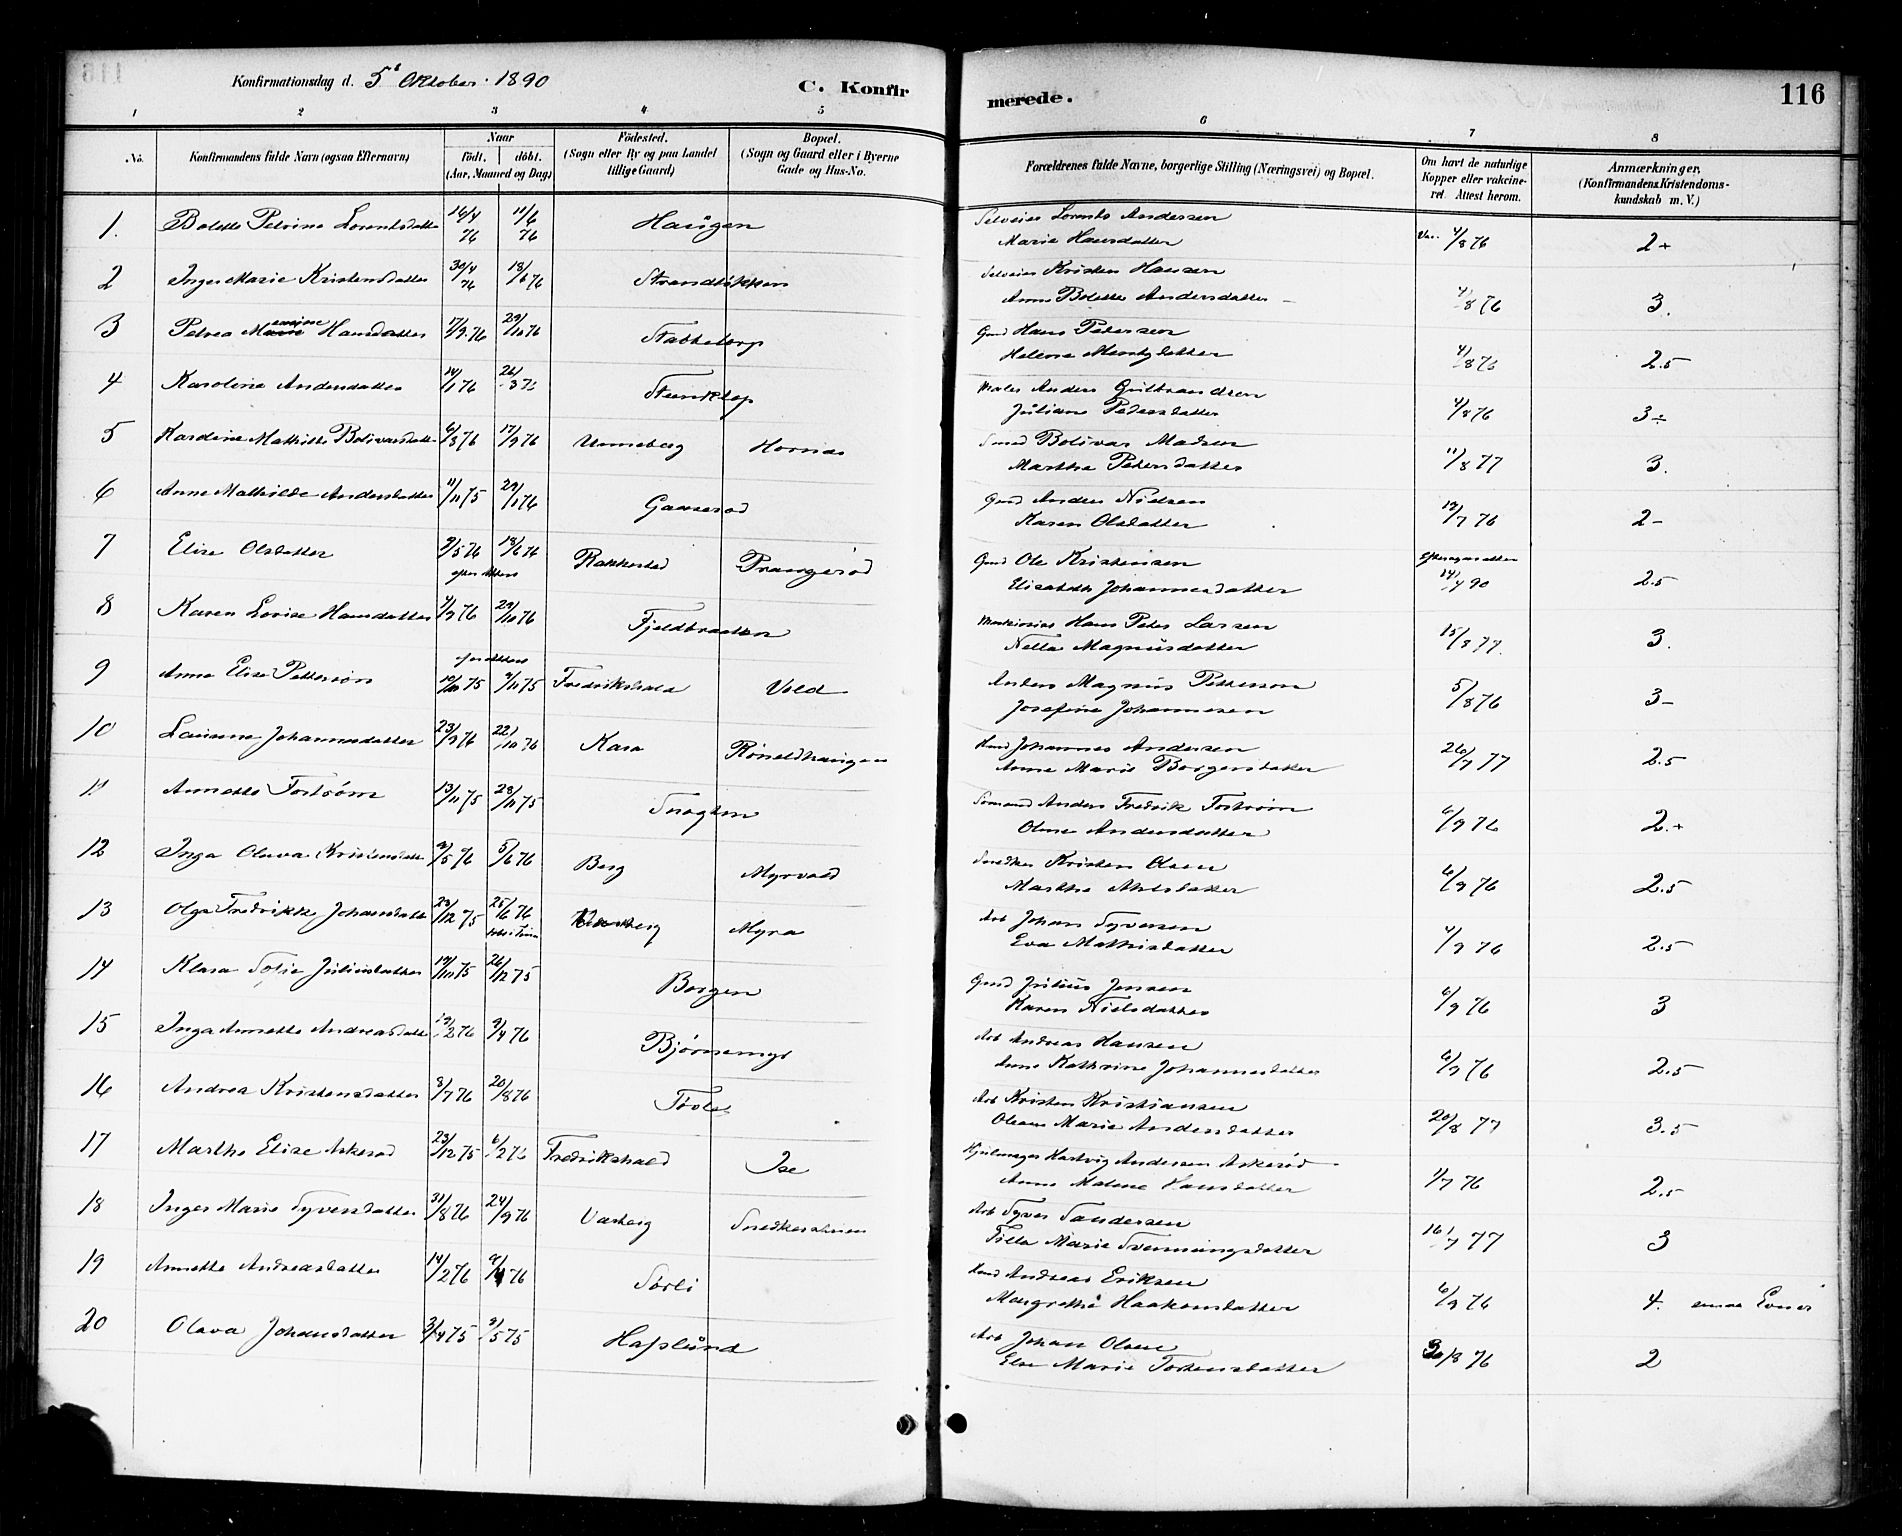 Konfirmationsdag d. 5' Oktober. 1890
C. Konfirmerede.
116
1 2 3 4 5 6 7 8
No. Konfirmandens fulde Navn (ogsaa Efternavn) Naar födt. döbt. (Aar, Maaned og Dag) Födested. (Sogn eller By og paa Landet tillige Gaard) Bopæl. (Sogn og Gaard eller i Byerne Gade og Hus-No. Forældrenes fulde Navne, borgerlige Stilling (Næringsvei) og Bopæl. Om havt de naturlige Kopper eller vakcineret. Attest herom. Anmærkninger. (Konfirmandens Kristendomskundskab m. V.)
1. Bolette Petrine Lorentsdatter 16/4 76 11/6 76 Haugen Selveier Lorents Andersen
Marie Hansdatter Vac. 4/8 76 2+
2 Inger Marie Kristensdatter 30/4 76 18/6 76 Strandløkken Selveier Kristen Hansen
Anne Bolette Andersdatter 4/8 76 3.
3 Petrea Maxine Hansdatter 17/9 76 29/10 76 Stabbetorp Gmd Hans Petersen
Helene Mentzdatter 4/8 76 2.5
4 Karoline Andersdatter 14/1 76 26/3 76 Maler Anders Gulbrandsen
Juliane Pedersdatter 4/8 76 3÷
5 Kardine Mathilde Bolivarsdatter 6/8 76 17/9 76 Unneberg Hornæs Smed Bolivar Madsen
Marthe Petersdatter 11/8 77 3.
6 Anne Mathilde Andersdatter 11/11 75 29/1 76 Gaaserød Gmd Anders Nielsen
Karen Olsdatter 12/7 76 2-
7 Elise Olsdatter 9/5 76 18/6 76 Rakkestad Prangerød Gmd Ole Kristensen
efter Attest Elisabeth Johannesdatter 14/7 90 2.5
8 Karen Lovise Hansdatter 4/9 76 29/10 76 Fjeldbraaten Hans Peter Larsen
Nella Magnusdatter 15/8 77. 3.
9 Anne Elise Petterson 10/10 75 9/11 75 Fredrikshald Vold Anders Magnus Petterson
Josefine Johannesen 5/8 76 3-
10 Laurine Johannesdatter 23/9 76 22/10 76 Kasa Røneldhaugen Hmd Johannes Andersen
Anne Marie Borgersdatter 26/7 77 2.5
11 Annette Forsrøm 13/11 75 28/11 75 Sømand Anders Fredrik Forsrøm
Oline Andersdatter 6/9 76 2.+
12 Inga Olava Kristensdatter 9/5 76 5/6 76 Berg Myrvold Snedker Kristen Olsen
Marthe 6/9 76 2.5
13 Olga Fredrikke Johansdatter 29/12 75 25/6 76 Myra Arb Johan Syversen
Eva Mathisdatter 4/9 76 2.5
14 Klara Sofie Juliusdatter 19/10 75 26/12 75 Borgen Gmd Julius Jensen
Karen Nielsdatter 6/9 76 3
15 Inga Annette Andreasdatter 19/2 76 9/4 76 Bjørnemyr Arb Andreas Hansen
Anne Kathrine Johannesdatter 6/9 76 2.5
16 Andrea Kristensdatter 8/7 76 20/8 76 Arb Kristen Kristiansen
Oleane Marie Andersdatter 20/8 77 3.5
17 Marthe Elise Askerød 23/12 75 6/2 76 Fredrikshald Ise Hjulmager Hartvig Andersen Askerød
Anne Malene Hansdatter 1/7 76 2.5
18 Inger Marie Syversdatter 31/8 76 24/9 76 Varteig Arb Syver Sandersen
Tilla Marie Svenningsdatter 16/7 77 3
19 Annette Andreasdatter 14/2 76 9/4 76 Sørli Hmd Andreas Eriksen
Margrethe Haakonsdatter 6/9 76 4. smaa Evner
20 Olava Johansdatter 3/4 75 9/5 75 Hafslund Arb Johan Olsen
Else Marie Torkersdatter 30/8 76 2